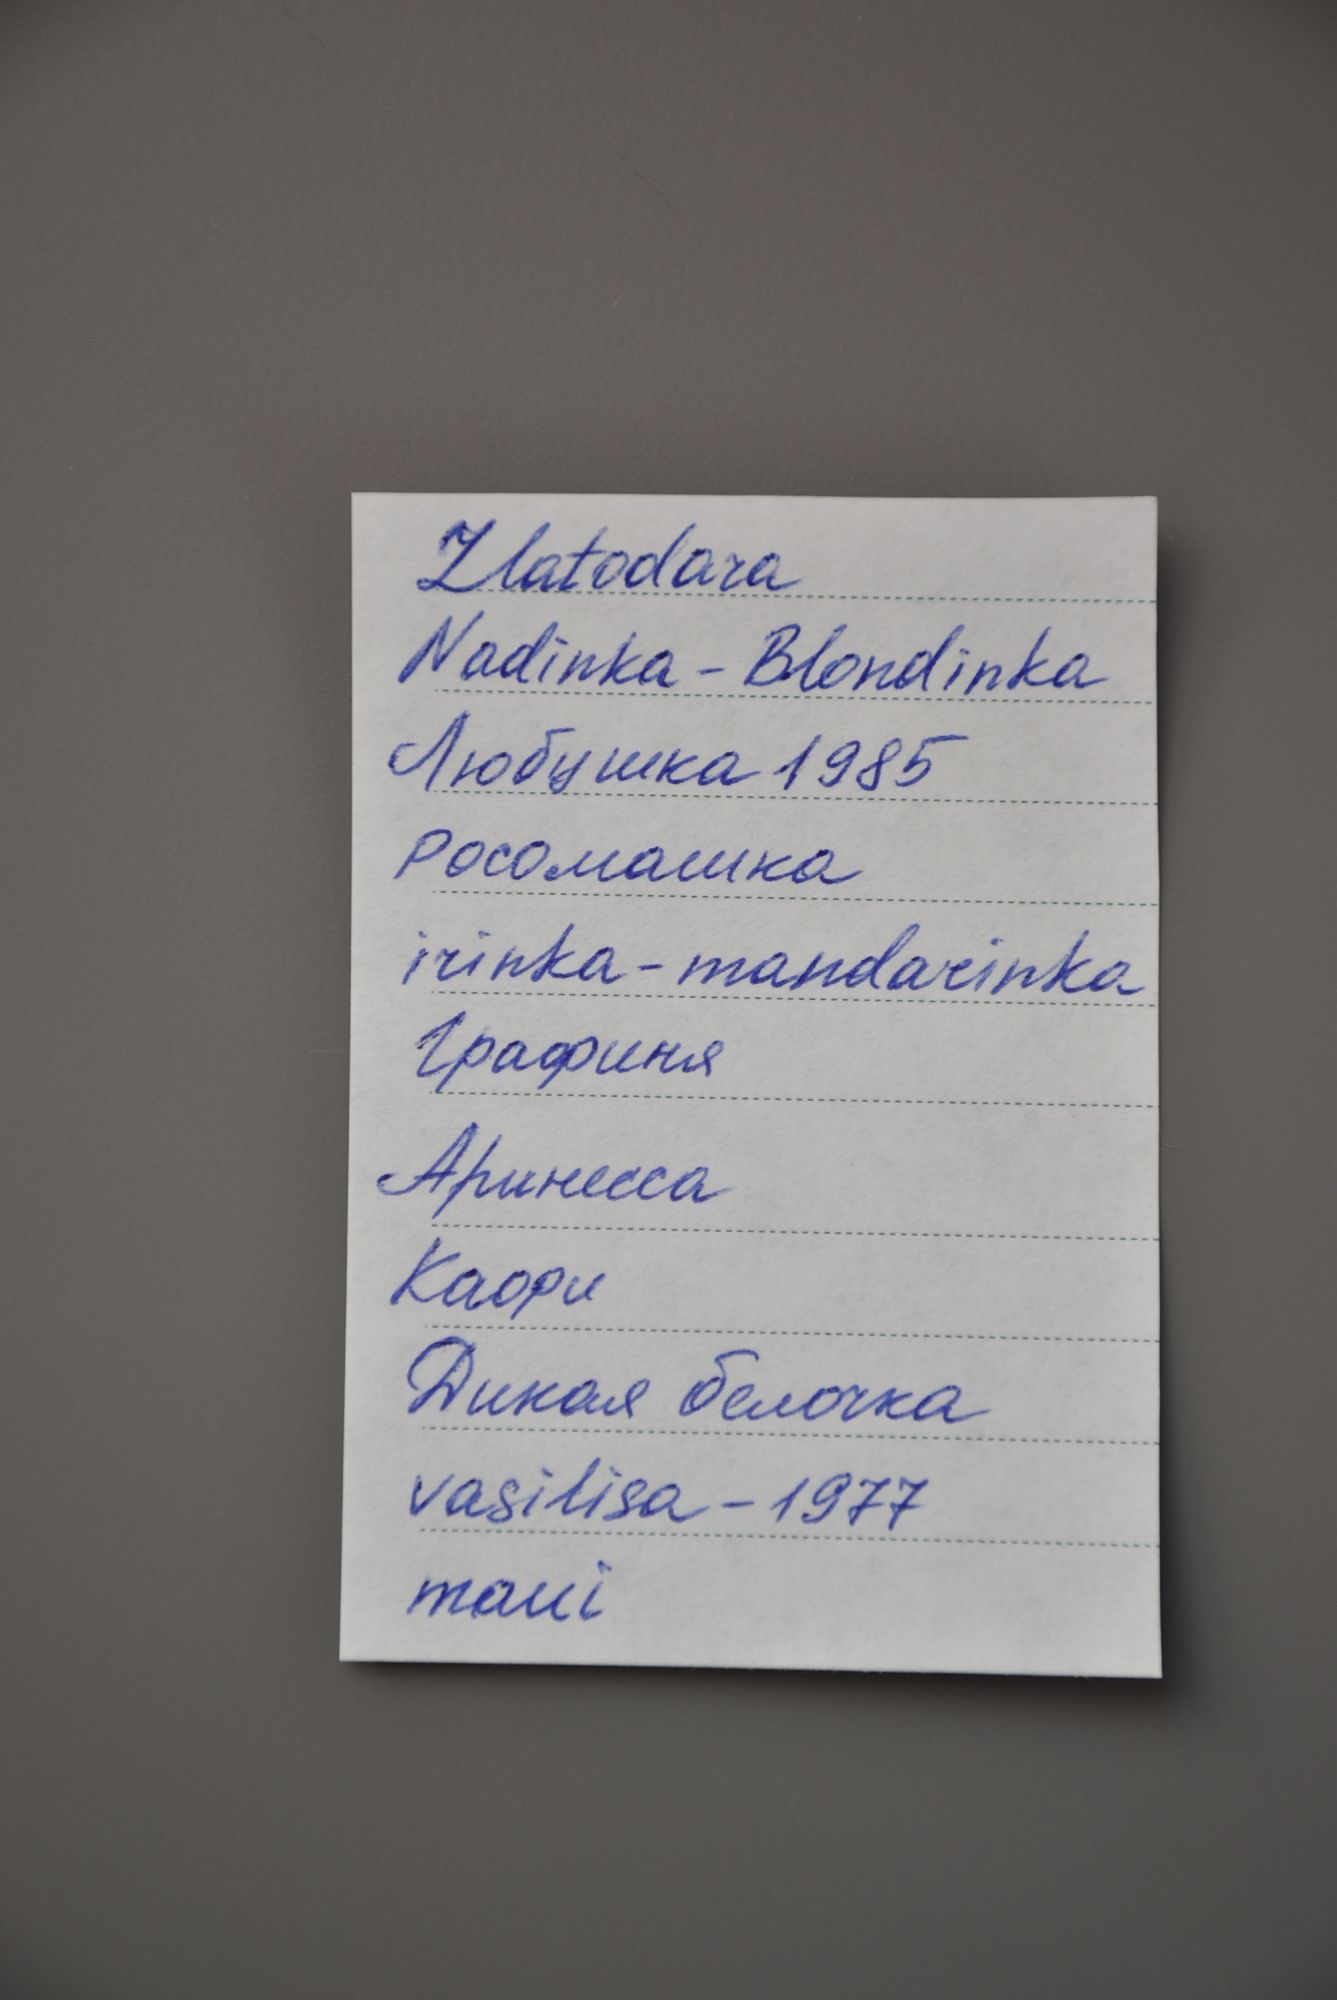 Zlatodara
Nadinka - Blondinka
Любушка 1985
Росомашка
irinka - mandarinka
Графиня
Аринесса
Каори
Дикая белочка
vasilisa - 1977
maui